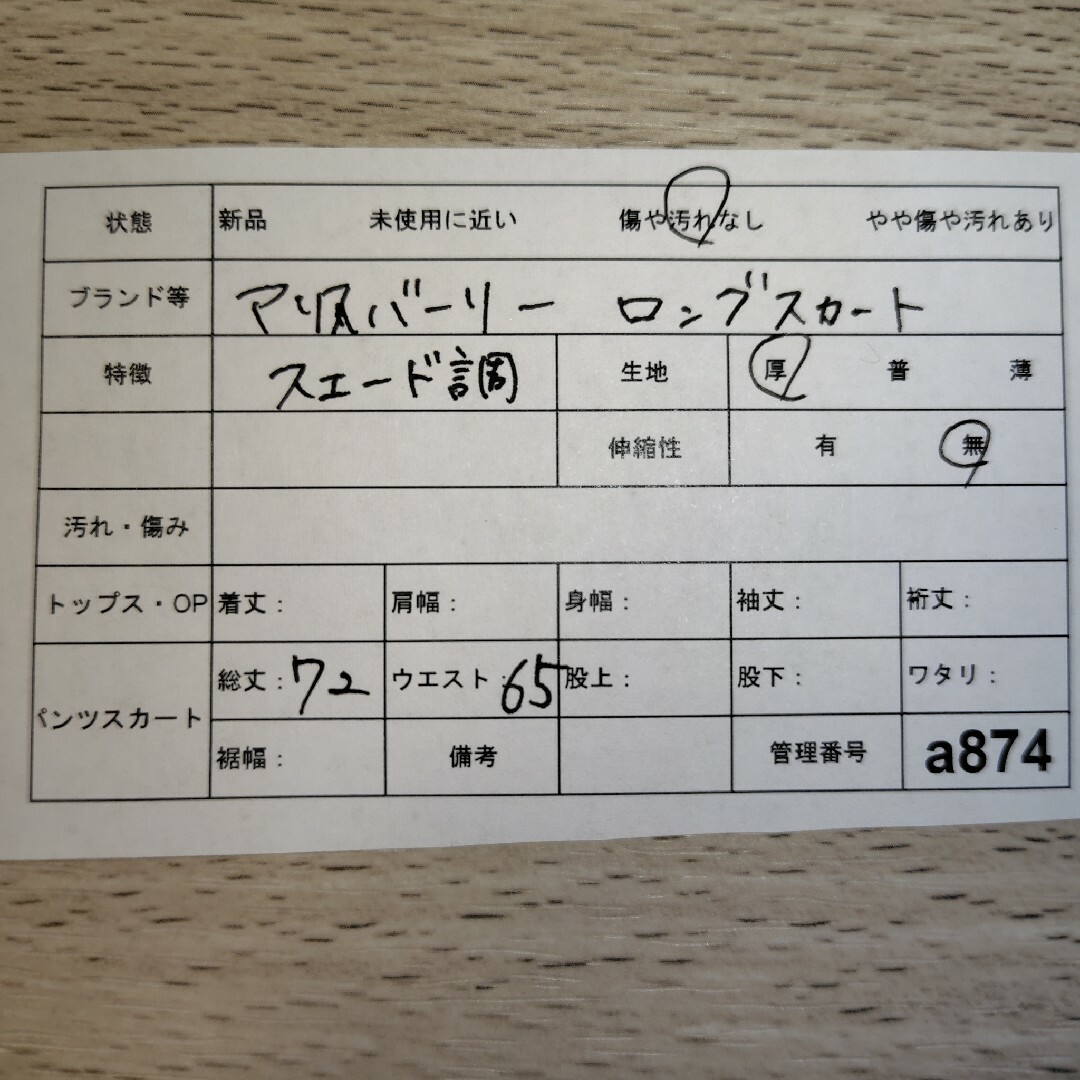 状態 新品 未使用に近い 傷や汚れなし やや傷や汚れあり
ブランド等 アリスバーリー ロングスカート
特徴 スエード調 生地 厚 普 薄
伸縮性 有 無
汚れ・傷み
トップス・OP 着丈： 肩幅： 身幅： 袖丈： 裄丈：
総丈：72 ウエスト：65 股上： 股下： ワタリ：
パンツスカート
裾幅： 備考 管理番号 a874